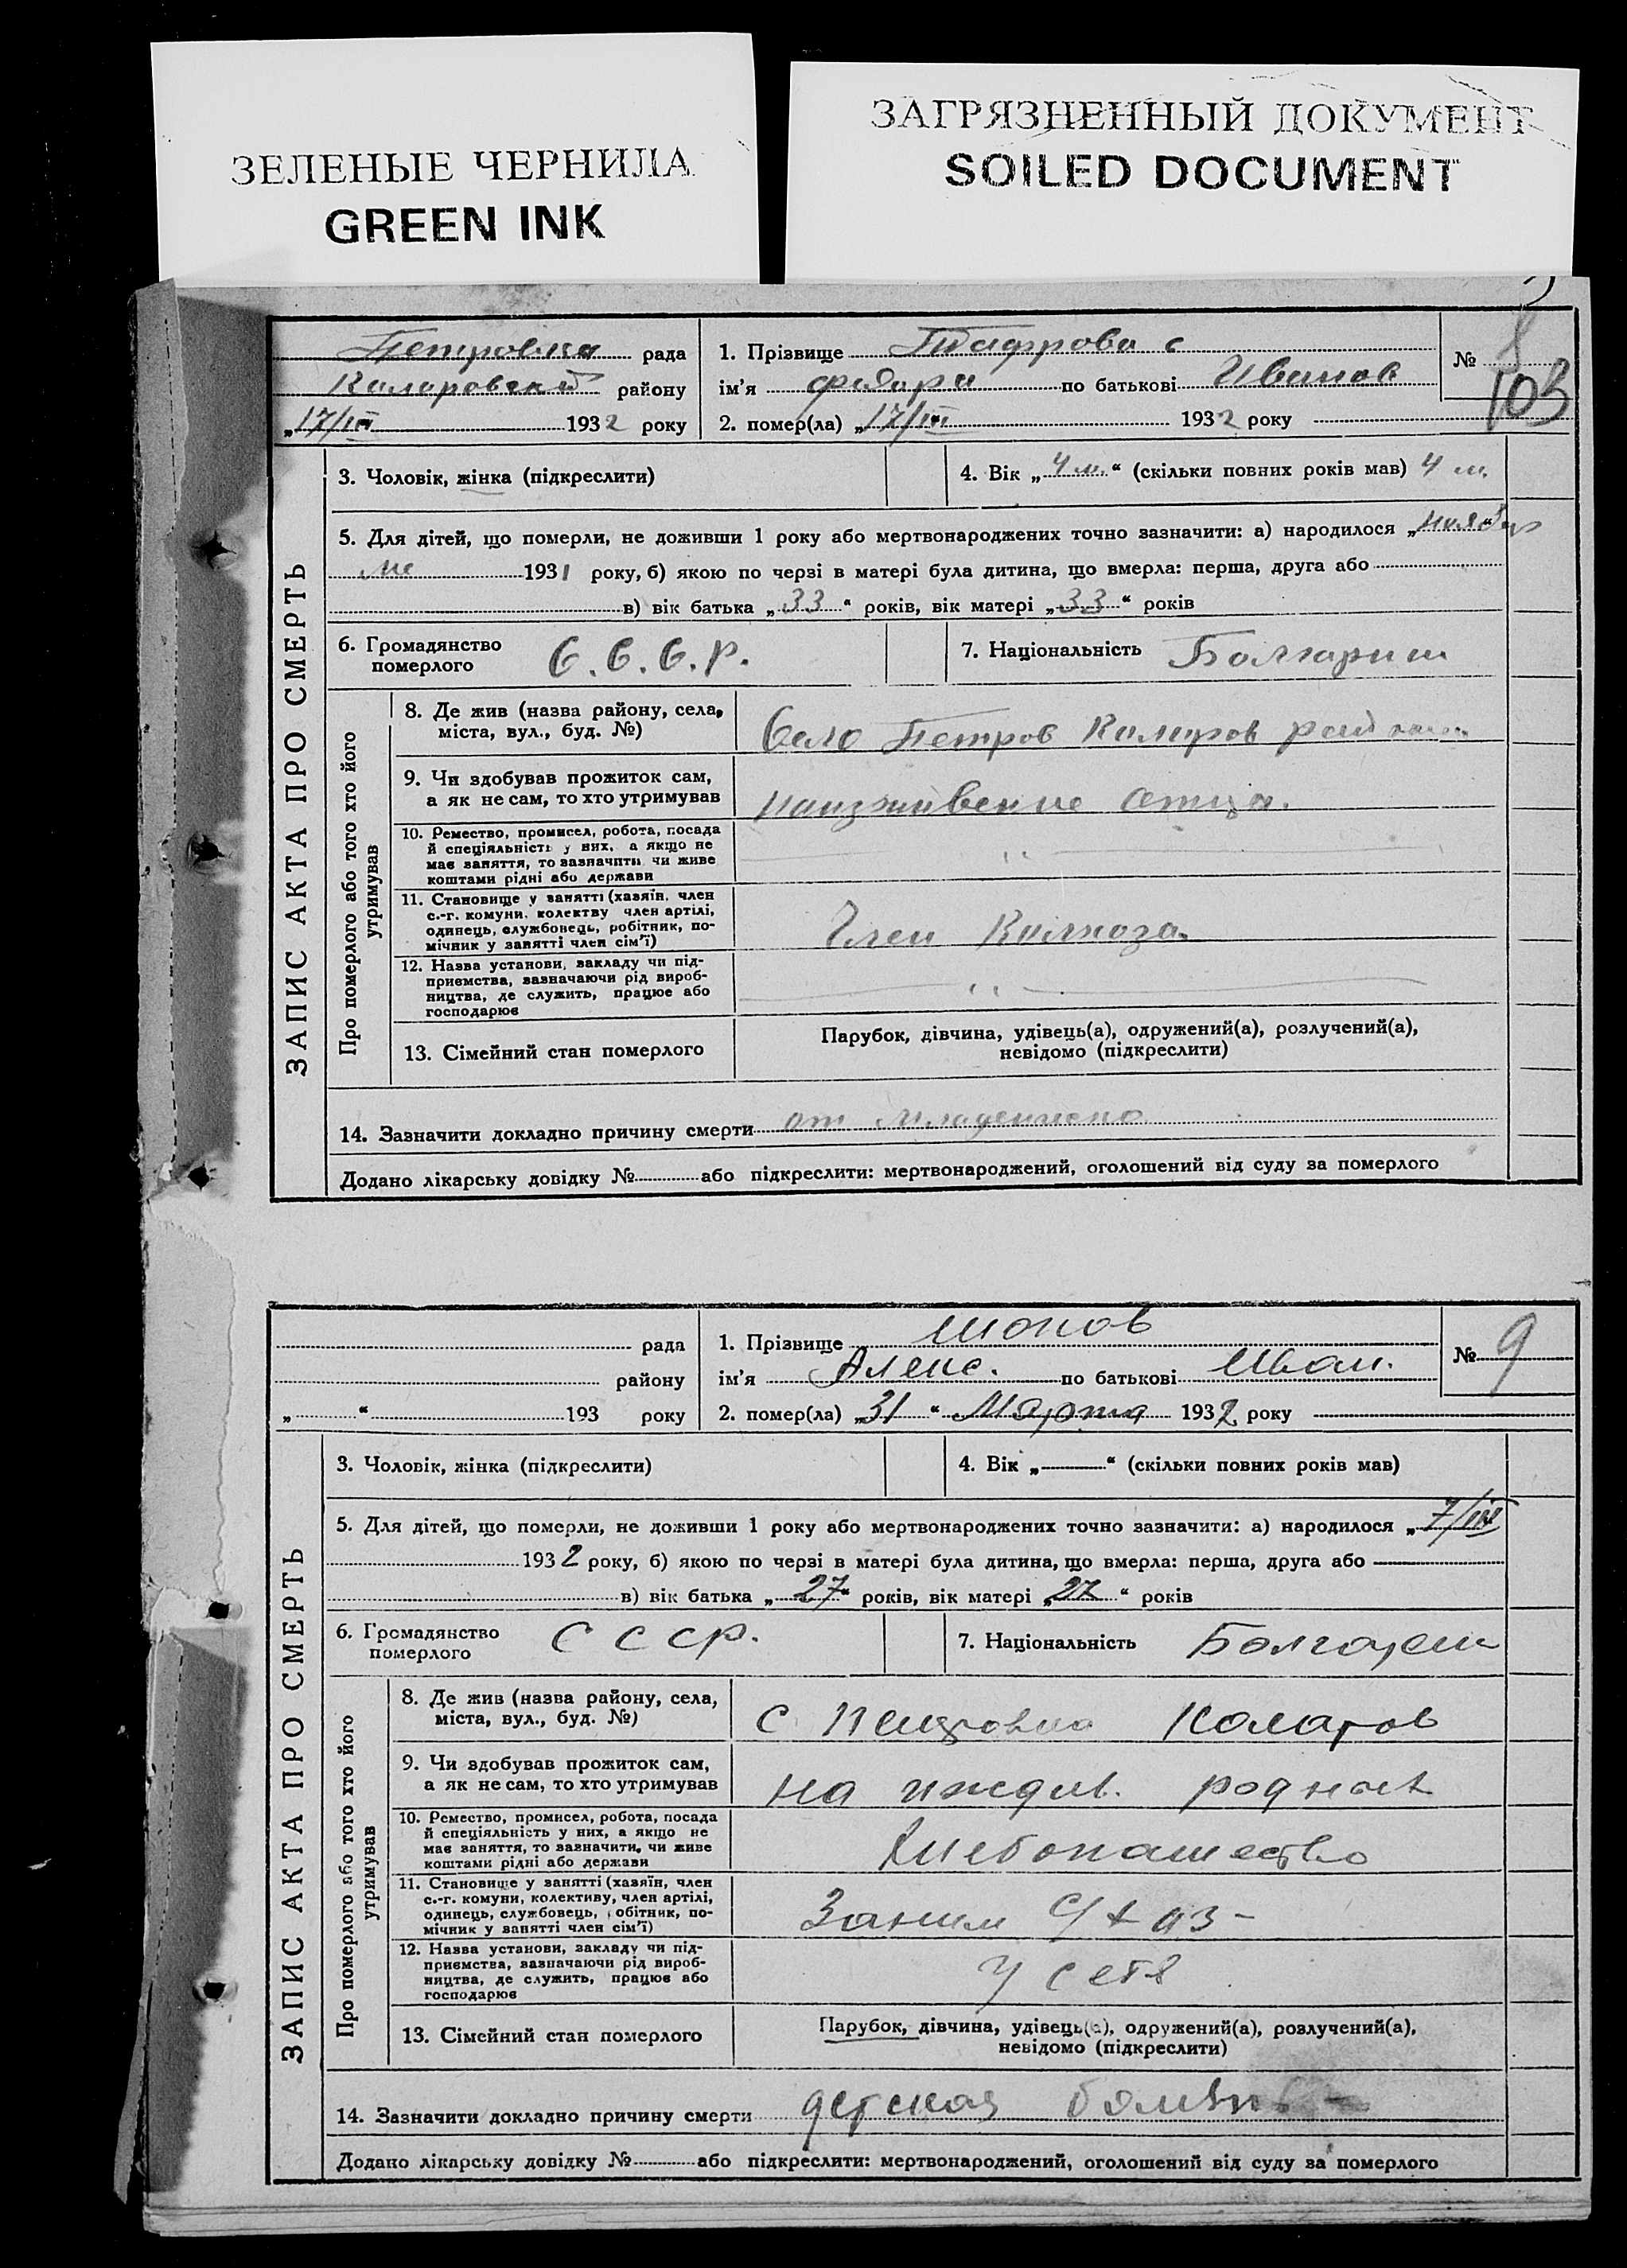 ЗЕЛЕНЫЕ ЧЕРНИЛА
GREEN INK
ЗАГРЯЗНЕННЫЙ ДОКУМЕНТ
SOILED DOCUMENT
Петровка рада
Коларовский району
„17/III 1932 року
1. Прізвище
ім'я по батькові Иванов
2. помер(ла) „17/III 1932 року
№ 8
103
ЗАПИС АКТА ПРО СМЕРТЬ
3. Чоловік, жінка (підкреслити)
4. Вік „4 м.“ (скільки повних років мав) 4 м.
5. Для дітей, що померли, не доживши 1 року або мертвонароджених точно зазначити: а) народилося „
1931 року, б) якою по черзі в матері була дитина, що вмерла: перша, друга або
в) вік батька „33“ років, вік матері „33“ років
6. Громадянство
померлого
С.С.С.Р.
7. Національність
Про померлого або того хто його
утримував
8. Де жив (назва району, села,
міста, вул., буд. №)
Село Петров Коларов
9. Чи здобував прожиток сам,
а як не сам, то хто утримував
отца.
10. Ремество, промисел, робота, посада
й спеціяльність у них, а якщо не
має заняття, то зазначити чи живе
коштами рідні або держави
"
11. Становище у занятті (хазяїн, член
с.-г. комуни, колективу член артілі,
одинець, службовець, робітник, по-
мічник у занятті член сім'ї)
Член Колхоза.
12. Назва установи, закладу чи під-
приємства, зазначаючи рід вироб-
ництва, де служить, працює або
господарює
"
13. Сімейний стан померлого
Парубок, дівчина, удівець(а), одружений(а), розлучений(а),
невідомо (підкреслити)
14. Зазначити докладно причину смерти от
Додано лікарську довідку № або підкреслити: мертвонароджений, оголошений від суду за померлого
рада
району
„ “ 193 року
1. Прізвище
ім'я Алекс. по батькові Иван.
2. помер(ла) „31“ Марта 1932 року
№ 9
ЗАПИС АКТА ПРО СМЕРТЬ
3. Чоловік, жінка (підкреслити)
4. Вік „ “ (скільки повних років мав)
5. Для дітей, що померли, не доживши 1 року або мертвонароджених точно зазначити: а) народилося „7/III
1932 року, б) якою по черзі в матері була дитина, що вмерла: перша, друга або
в) вік батька „27“ років, вік матері „27“ років
6. Громадянство
померлого
СССР.
7. Національність
Про померлого або того хто його
утримував
8. Де жив (назва району, села,
міста, вул., буд. №)
С Петровка Коларов
9. Чи здобував прожиток сам,
а як не сам, то хто утримував
на иждив. родных
10. Ремество, промисел, робота, посада
й спеціяльність у них, а якщо не
має заняття, то зазначити, чи живе
коштами рідні або держави
Хлебопашество
11. Становище у занятті (хазяїн, член
с.-г. комуни, колективу, член артілі,
одинець, службовець, робітник, по-
мічник у занятті член сім'ї)
12. Назва установи, закладу чи під-
приємства, зазначаючи рід вироб-
ництва, де служить, працює або
господарює
У себя
13. Сімейний стан померлого
Парубок, дівчина, удівець(а), одружений(а), розлучений(а),
невідомо (підкреслити)
14. Зазначити докладно причину смерти детская болезнь
Додано лікарську довідку № або підкреслити: мертвонароджений, оголошений від суду за померлого